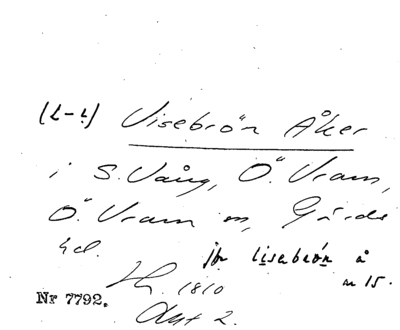 (L-?) Visebrön Åker
i S. Vång, Ö. Vram,
Ö. Vram sn, Gärds
hd. jfr lisebrön å
n 15.
1810
Nr 7792. Akt 2.